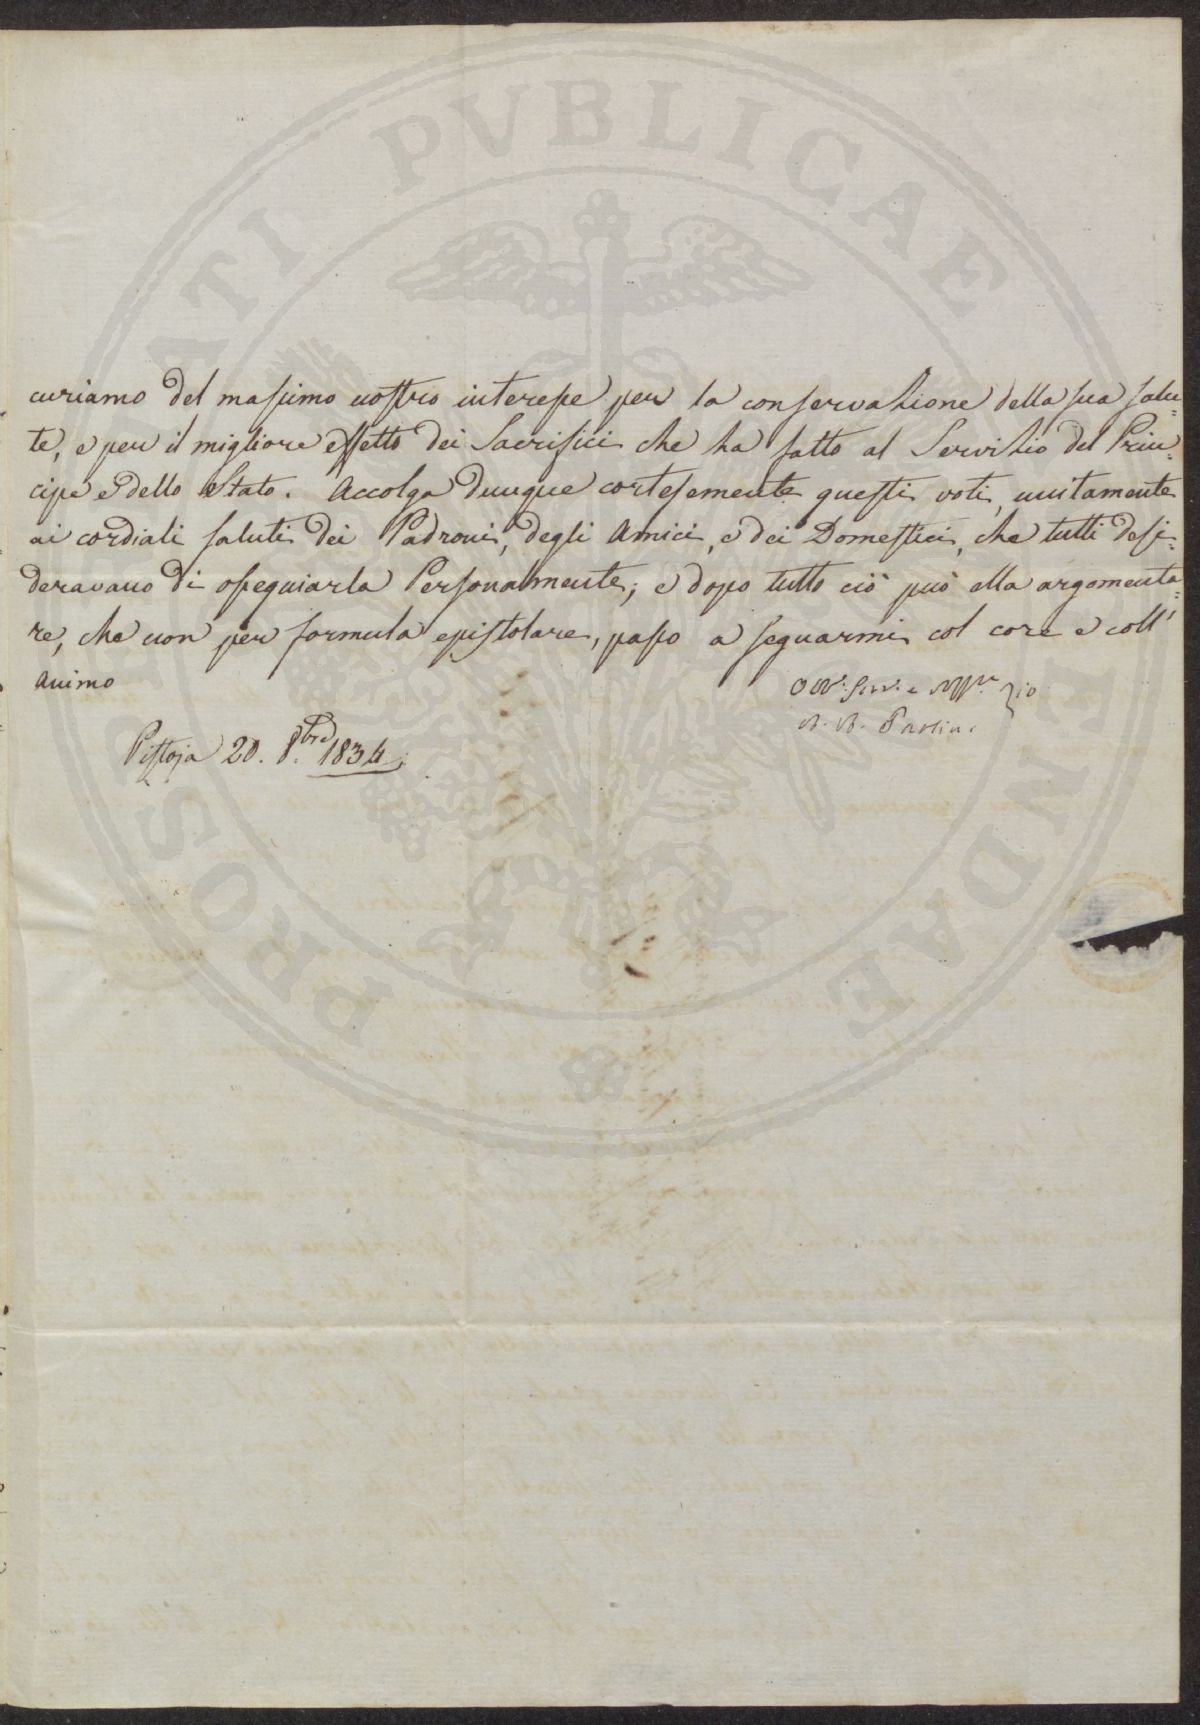 PROSPERITATI PVBLICAE AVGENDAE
curiamo del massimo nostro interesse per la conservazione della sua salu=
te, e per il migliore effetto dei Sacrifici che ha fatto al Servizio del Prin=
cipe e dello Stato. Accolga dunque cortesemente questi voti, unitamente
ai cordiali saluti dei Padroni, degli Amici, e dei Domestici, che tutti desi=
deravano di ossequiarla Personalmente; e dopo tutto ciò può ella argomenta=
re, che non per formula epistolare, passo a segnarmi col core e coll'
animo
Serv. e
Pistoja 20. 8.bre 1834.